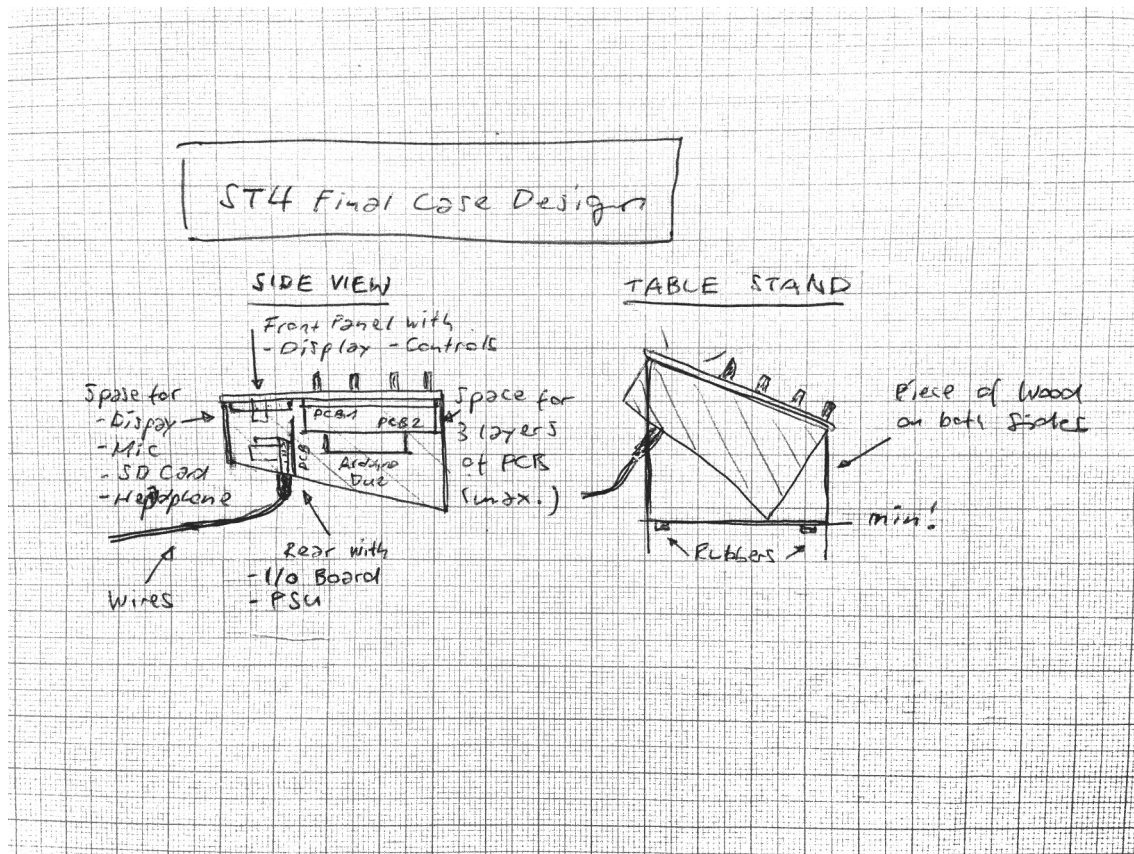 ST4 Final Case Design
SIDE VIEW
Front Panel with
- Display - Controls
Spase for
- Display
- Mic
- SD Card
- Headphone
PCB1
PCB2
PCB
Arduino
Due
Space for
3 layers
of PCB
(max.)
Rear with
- I/o Board
- PSU
Wires
TABLE STAND
Piece of Wood
on both Sides
min!
Rubbers